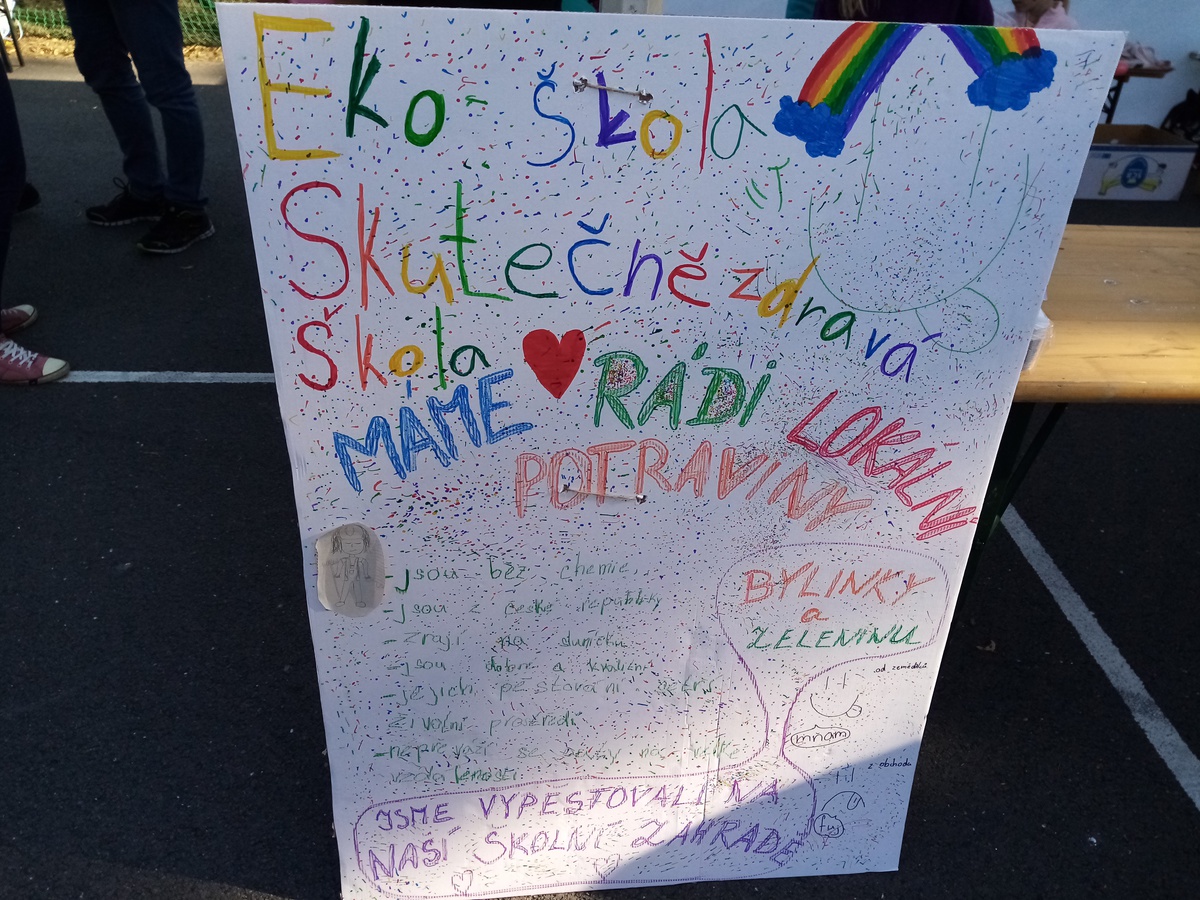 Eko-škola
Skutečně zdravá
Škola
MÁME RÁDI
LOKÁLNÍ
POTRAVINY
- jsou bez chemie,
- jsou z české republiky
- zrají na sluníčku
- jsou dobré a kvalitní
- jejich pěstování šetří
životní prostředí
- nepřeváží se na velké
vzdálenosti
BYLINKY
a
ZELENINU
od zemědělce
mňam
z obchodu
fuj
JSME VYPĚSTOVALI NA
NAŠÍ ŠKOLNÍ ZAHRADĚ